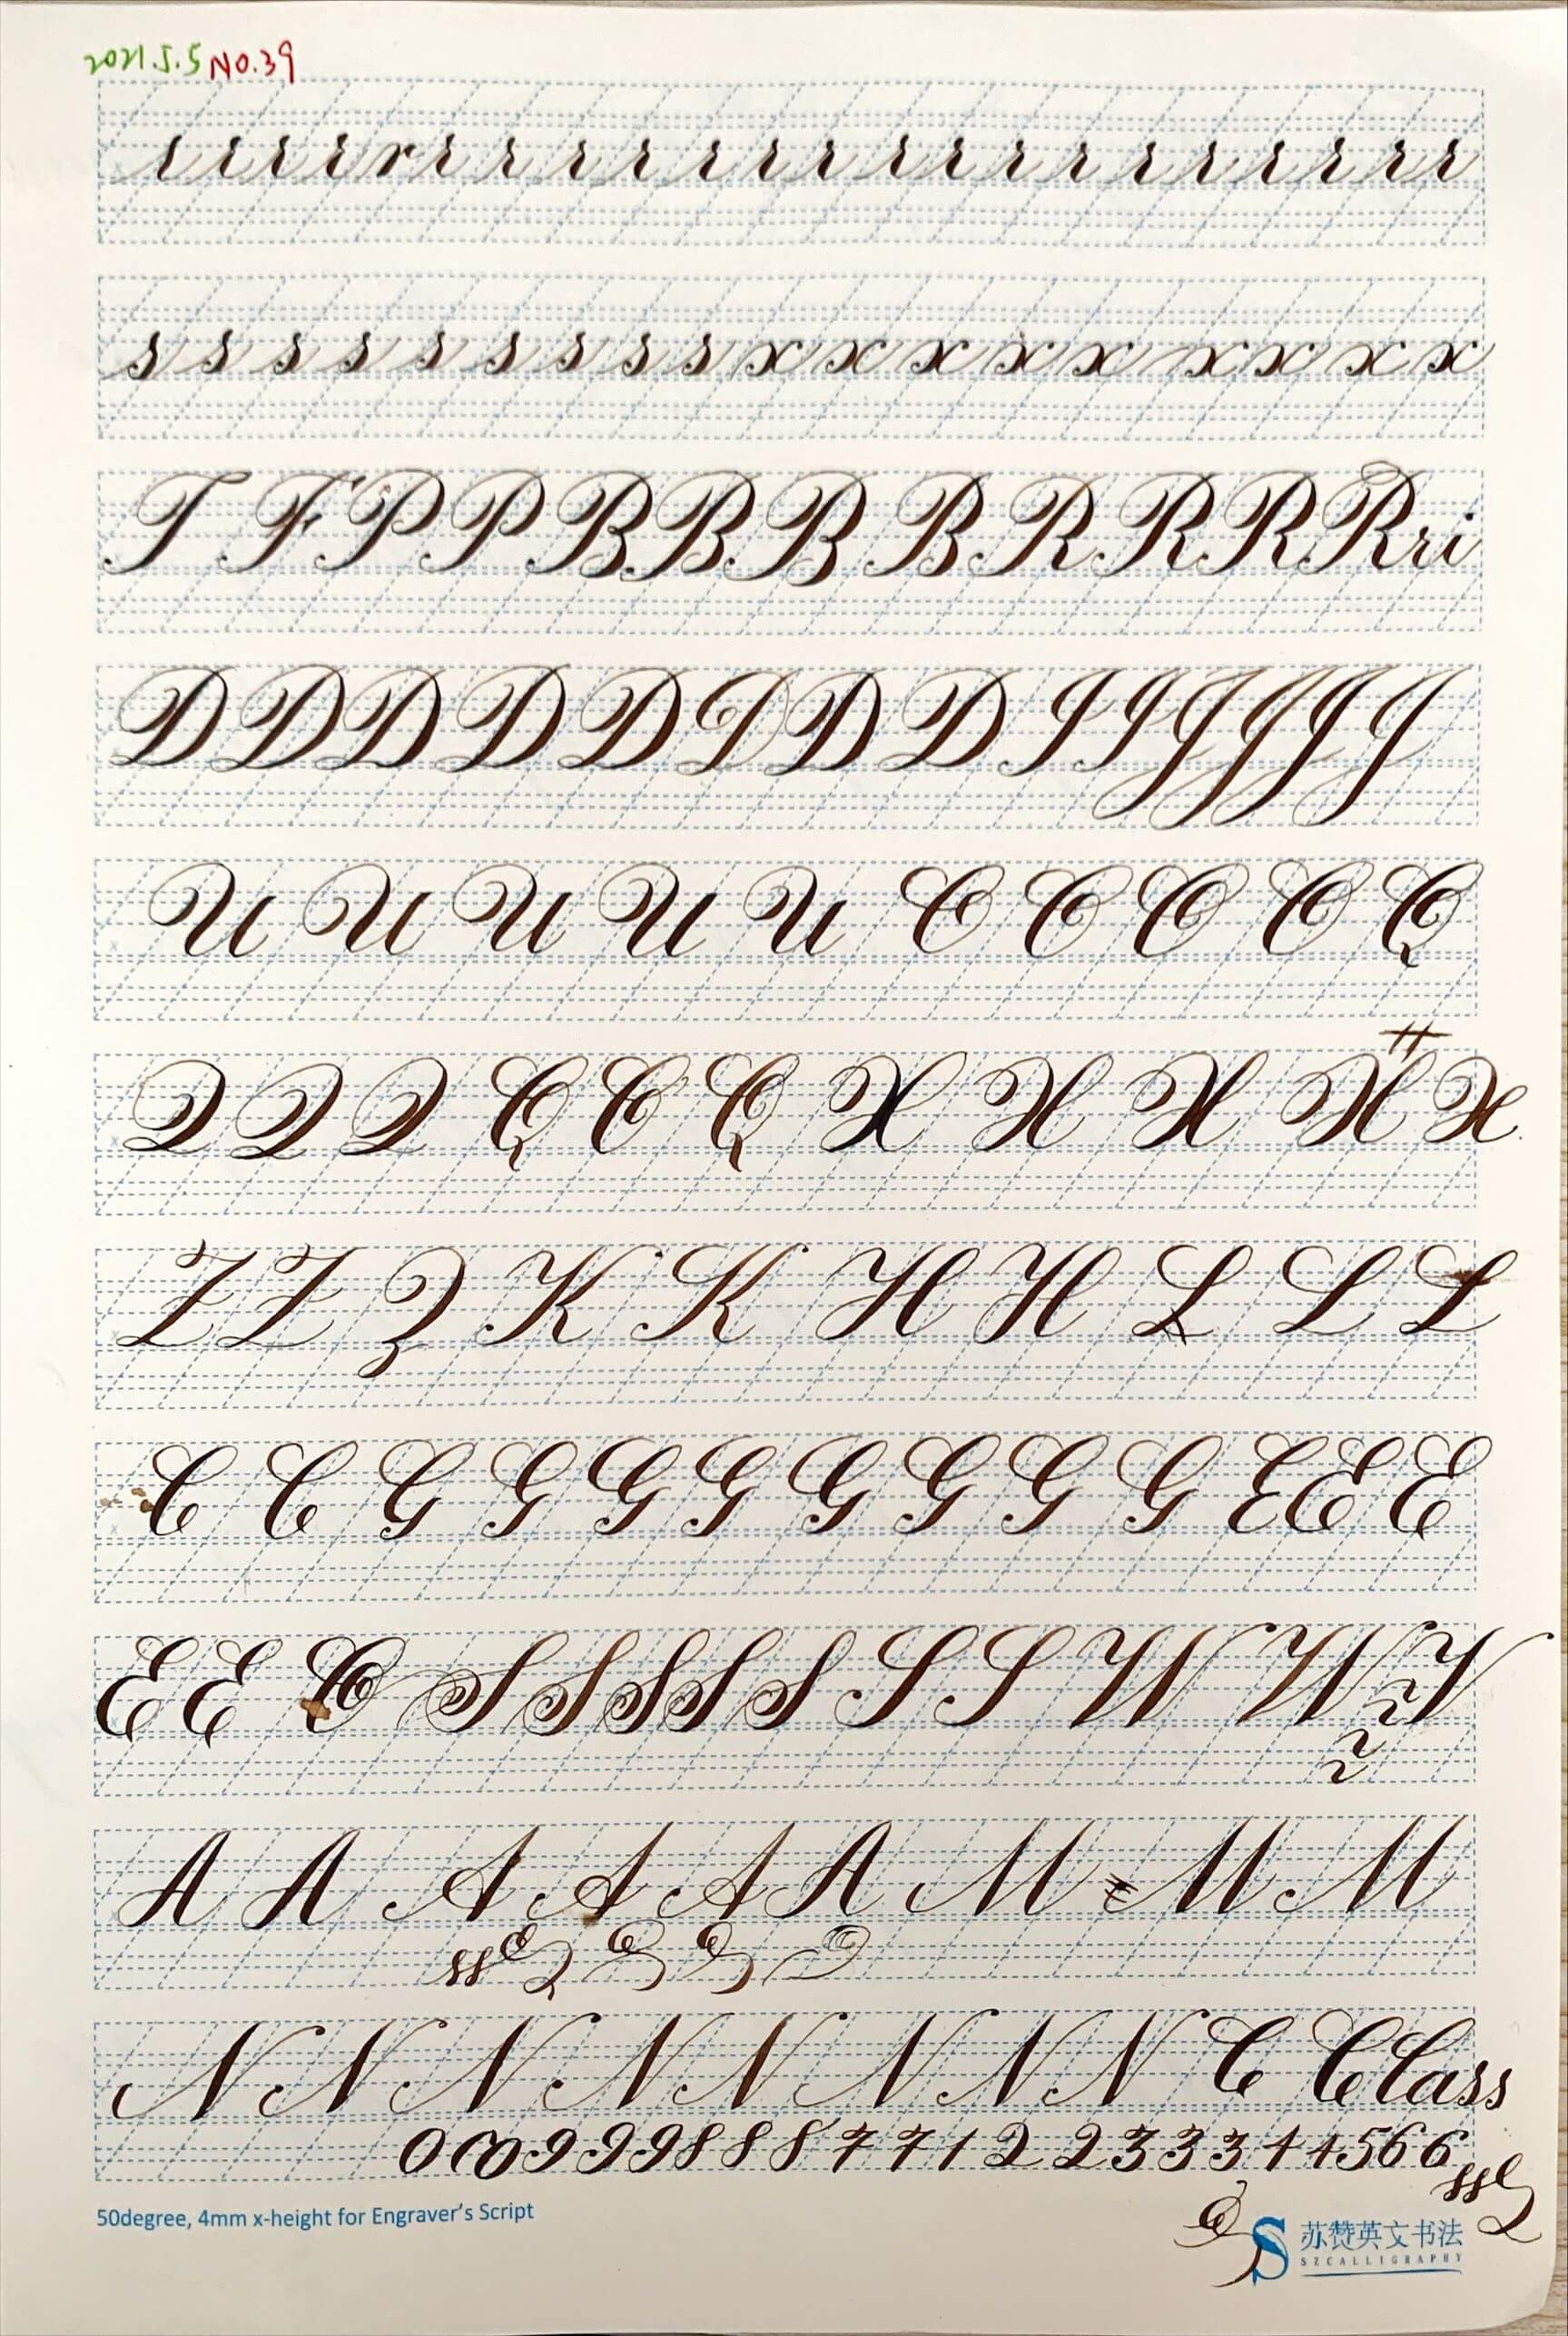 2021.5.5 NO.39
r r r r r r r r r r r r r r r r r r r r r r
s s s s s s s s s x x x x x x x x x
T F P P B B B B R R R R ri
D D D D D D D D I I J J J J
U U U U U C C C C Q
Q Q Q Q C Q X X X X X
Z Z Z K K H H L L L
C C G G G G G G G G E E E
E E C S S S S S S S W W Y
A A A A A A M M M
N N N N N N N N C C Class
0 0 0 9 9 9 8 8 8 7 7 1 2 2 3 3 3 4 4 5 6 6
50degree, 4mm x-height for Engraver's Script
苏赞英文书法
SZCALLIGRAPHY